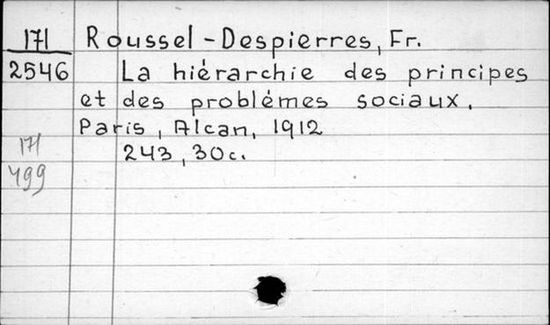 171 Roussel-Despierres, Fr.
2546 La hiérarchie des principes
et des problémes sociaux.
Paris, Alcan, 1912
171
243, 30c.
499